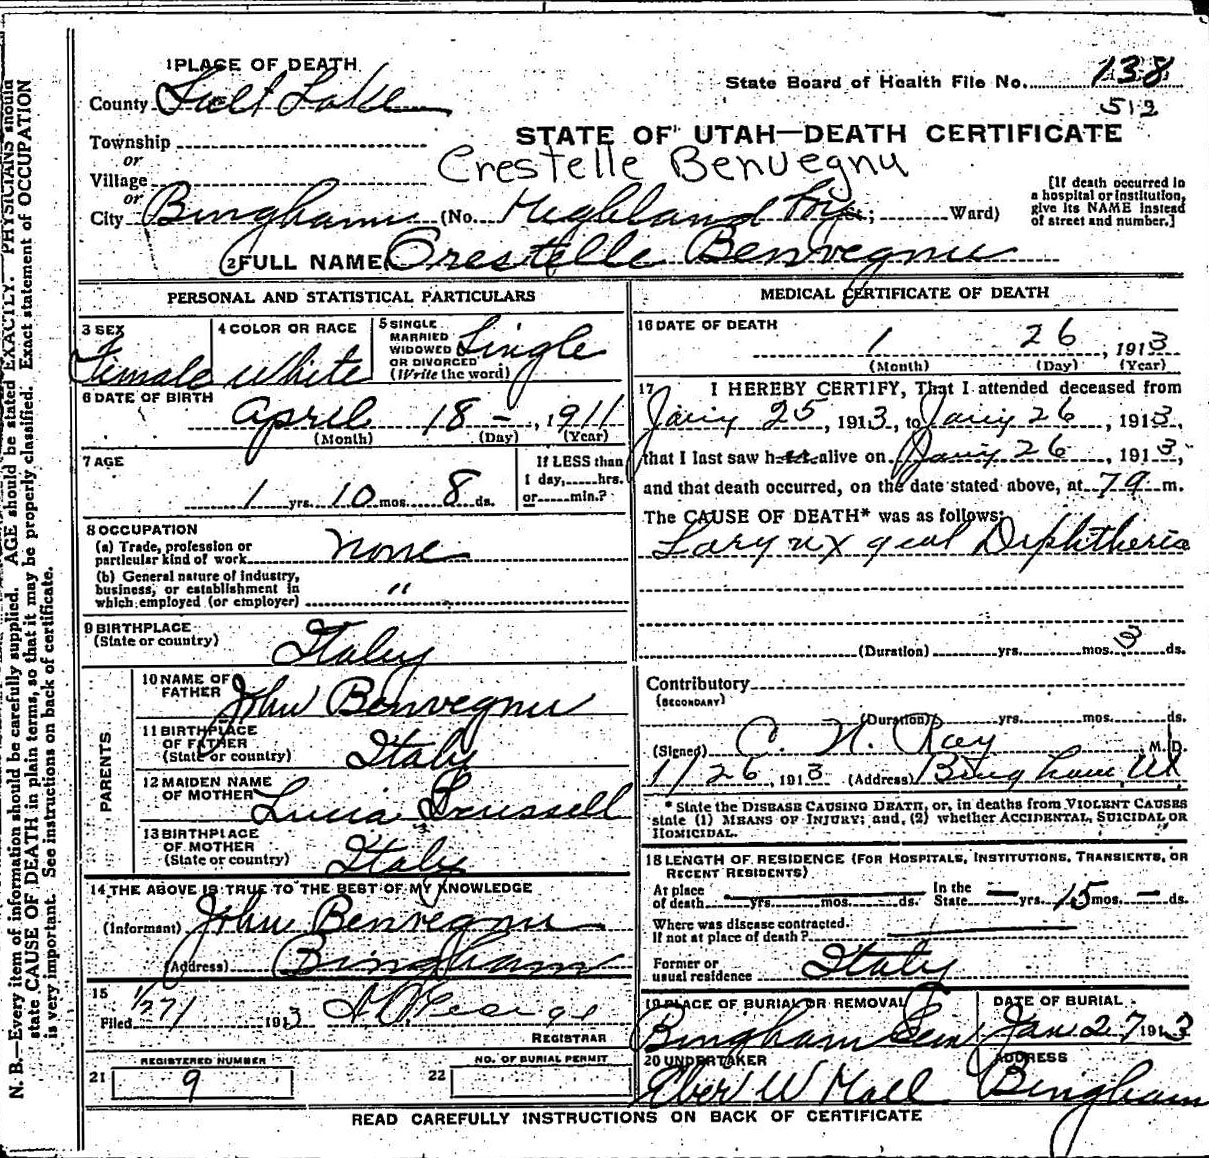 1 PLACE OF DEATH
State Board of Health File No. 138
County Salt Lake
512
Township
STATE OF UTAH—DEATH CERTIFICATE
or
Crestelle Benvegnu
Village
or
[If death occurred in a hospital or institution, give its NAME instead of street and number.]
City Bingham (No. Highland Boy St.; Ward)
2 FULL NAME Crestelle Benvegnu
PERSONAL AND STATISTICAL PARTICULARS
3 SEX Female
4 COLOR OR RACE White
5 SINGLE MARRIED WIDOWED OR DIVORCED (Write the word) Single
6 DATE OF BIRTH April 18 - , 1911
(Month) (Day) (Year)
7 AGE 1 yrs. 10 mos. 8 ds.
If LESS than 1 day, hrs. or min.?
8 OCCUPATION
(a) Trade, profession or particular kind of work none
(b) General nature of industry, business, or establishment in which employed (or employer) "
9 BIRTHPLACE (State or country) Italy
PARENTS
10 NAME OF FATHER John Benvegnu
11 BIRTHPLACE OF FATHER (State or country) Italy
12 MAIDEN NAME OF MOTHER Lucia
13 BIRTHPLACE OF MOTHER (State or country) Italy
14 THE ABOVE IS TRUE TO THE BEST OF MY KNOWLEDGE
(Informant) John Benvegnu
(Address) Bingham
15
Filed 1/27/ 1913
REGISTRAR
REGISTERED NUMBER
21 9
NO. OF BURIAL PERMIT
22
MEDICAL CERTIFICATE OF DEATH
16 DATE OF DEATH
1 26, 1913
(Month) (Day) (Year)
17 I HEREBY CERTIFY, That I attended deceased from
Jany 25, 1913, to Jany 26, 1913,
that I last saw her alive on Jany 26, 1913,
and that death occurred, on the date stated above, at 79 m.
The CAUSE OF DEATH* was as follows:
Larynxgeal Diphtheria
(Duration) yrs. mos. 3 ds.
Contributory
(SECONDARY)
(Duration) yrs. mos. ds.
(Signed) C. N. Ray, M. D.
1/26, 1913 (Address) Bingham Ut
* State the DISEASE CAUSING DEATH, or, in deaths from VIOLENT CAUSES state (1) MEANS OF INJURY; and, (2) whether ACCIDENTAL, SUICIDAL OR HOMICIDAL.
18 LENGTH OF RESIDENCE (FOR HOSPITALS, INSTITUTIONS, TRANSIENTS, OR RECENT RESIDENTS)
At place of death yrs. mos. ds. In the State — yrs. 15 mos. — ds.
Where was disease contracted. If not at place of death?
Former or usual residence Italy
19 PLACE OF BURIAL OR REMOVAL Bingham Cem
DATE OF BURIAL Jan 27 1913
20 UNDERTAKER Eber W Hall
ADDRESS Bingham
READ CAREFULLY INSTRUCTIONS ON BACK OF CERTIFICATE
N. B.—Every item of information should be carefully supplied. AGE should be stated EXACTLY. PHYSICIANS should
state CAUSE OF DEATH in plain terms, so that it may be properly classified. Exact statement of OCCUPATION
is very important. See instructions on back of certificate.